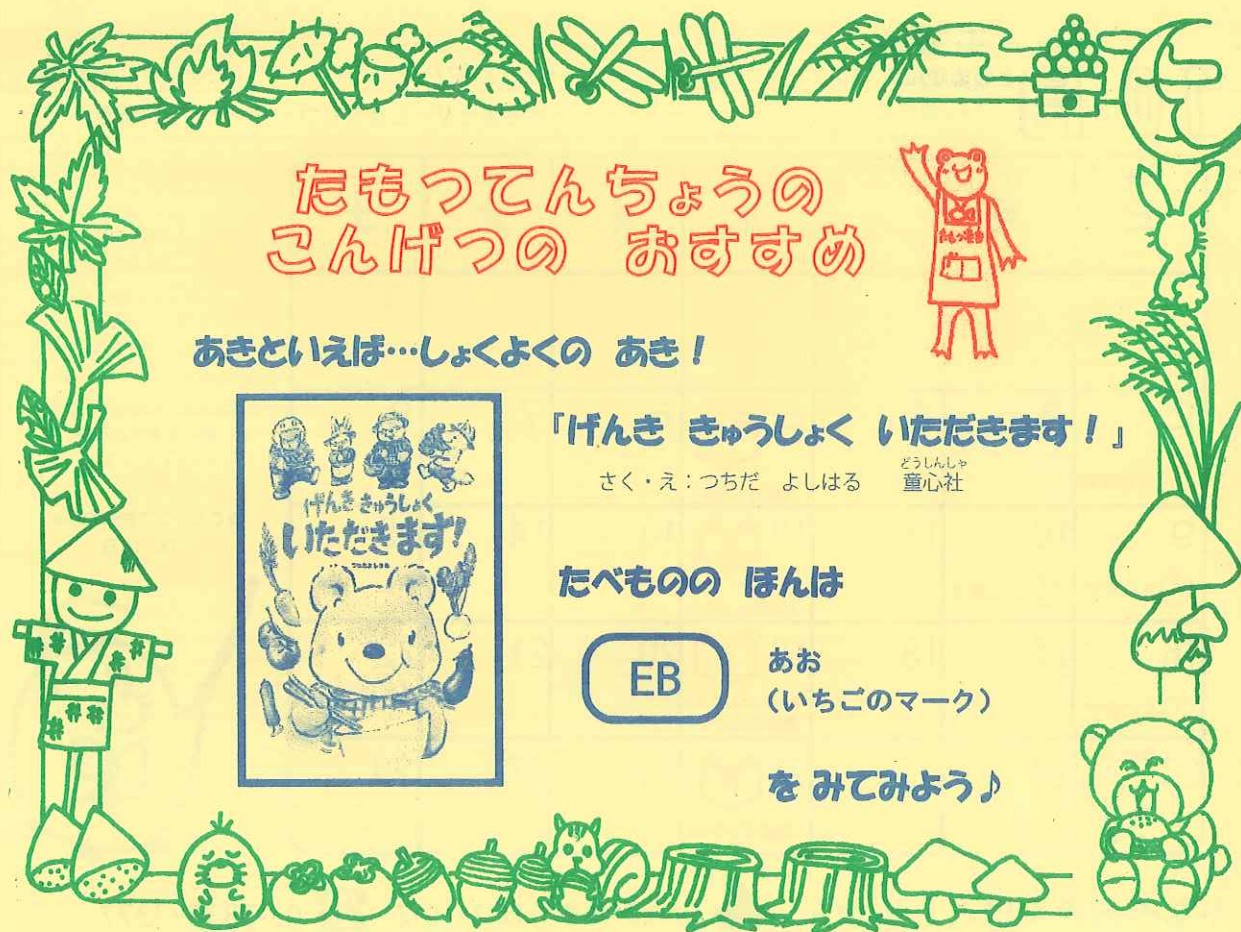 たもつてんちょうの
こんげつの おすすめ
たもつ書店
あきといえば…しょくよくの あき！
げんき きゅうしょく
いただきます!
つちだよしはる
「げんき きゅうしょく いただきます！」
さく・え：つちだ よしはる 童心社
どうしんしゃ
たべものの ほんは
EB
あお
（いちごのマーク）
を みてみよう♪